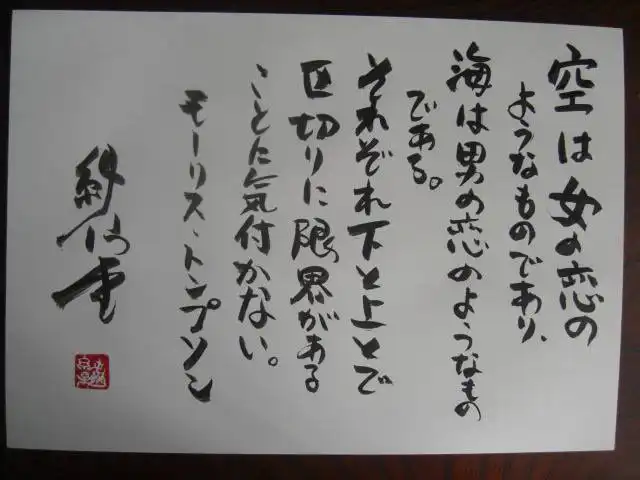 空は女の恋の
ようなものであり、
海は男の恋のようなもの
である。
それぞれ下と上とで
区切りに限界がある
ことに気付かない。
モーリス・トンプソン